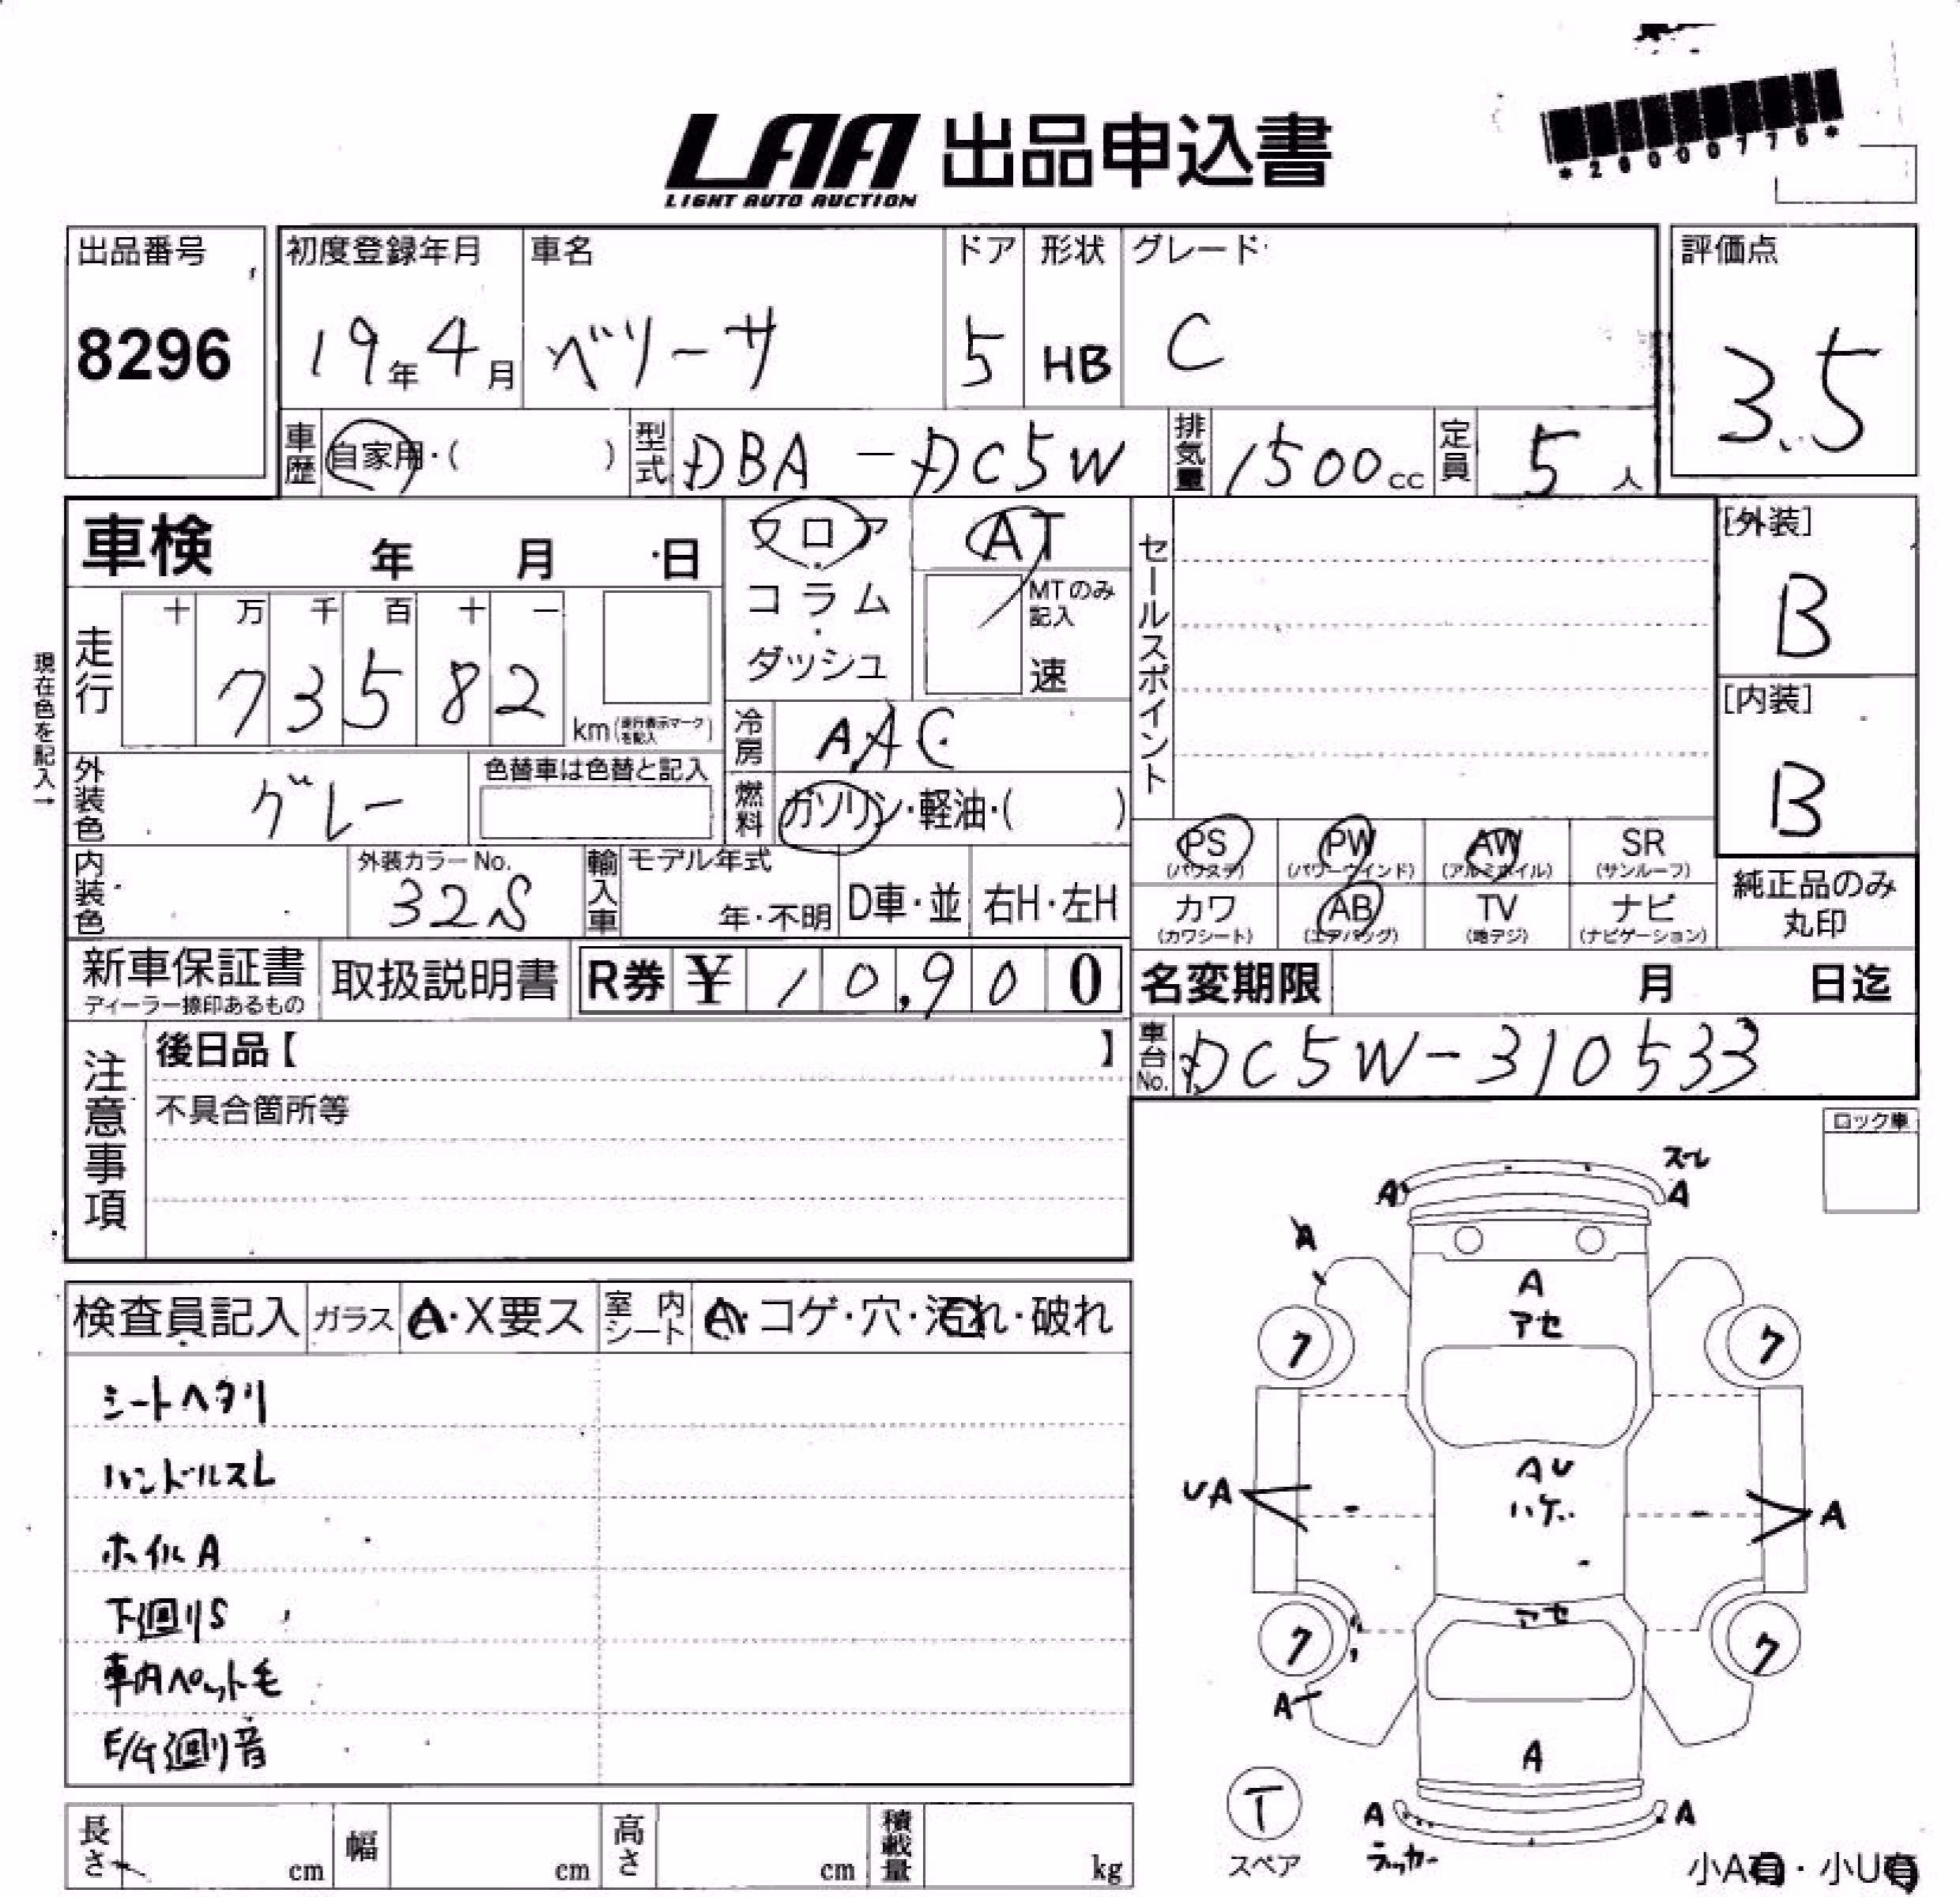 LAA 出品申込書
LIGHT AUTO AUCTION
*20000776*
出品番号
8296
初度登録年月
19年4月
車名
ベリーサ
ドア
5
形状
HB
グレード
C
評価点
3.5
車歴 自家用・( )
型式 DBA-DC5W
排気量 1500cc
定員 5人
車検 年 月 日
フロア・コラム・ダッシュ
AT
MTのみ記入
速
セールスポイント
[外装]
B
[内装]
B
現在色を記入→
走行 十 万 千 百 十 一
73582
km(走行表示マークを記入)
冷房 AAC
燃料 ガソリン・軽油・( )
外装色 グレー
色替車は色替と記入
内装色
外装カラーNo.
32S
輸入車
モデル年式
年・不明
D車・並
右H・左H
PS (パワステ)
PW (パワーウインド)
AW (アルミホイル)
SR (サンルーフ)
カワ (カワシート)
AB (エアバッグ)
TV (地デジ)
ナビ (ナビゲーション)
純正品のみ
丸印
新車保証書
ディーラー捺印あるもの
取扱説明書
R券 ¥ 10,900
名変期限 月 日迄
車台No. DC5W-310533
注意事項
後日品【 】
不具合箇所等
ロック車
検査員記入
ガラス A・X要ス
室内シート A・コゲ・穴・汚れ・破れ
シートヘタリ
ハンドルスレ
ホイルA
下廻りS
車内ペット毛
E/G廻り音
スレ
A A
A
A
アセ
ク ク
AU
ハゲ
UA A
アセ
ク ク
A
A
T
スペア
A A
ラッカー
小A有・小U有
長さ cm
幅 cm
高さ cm
積載量 kg